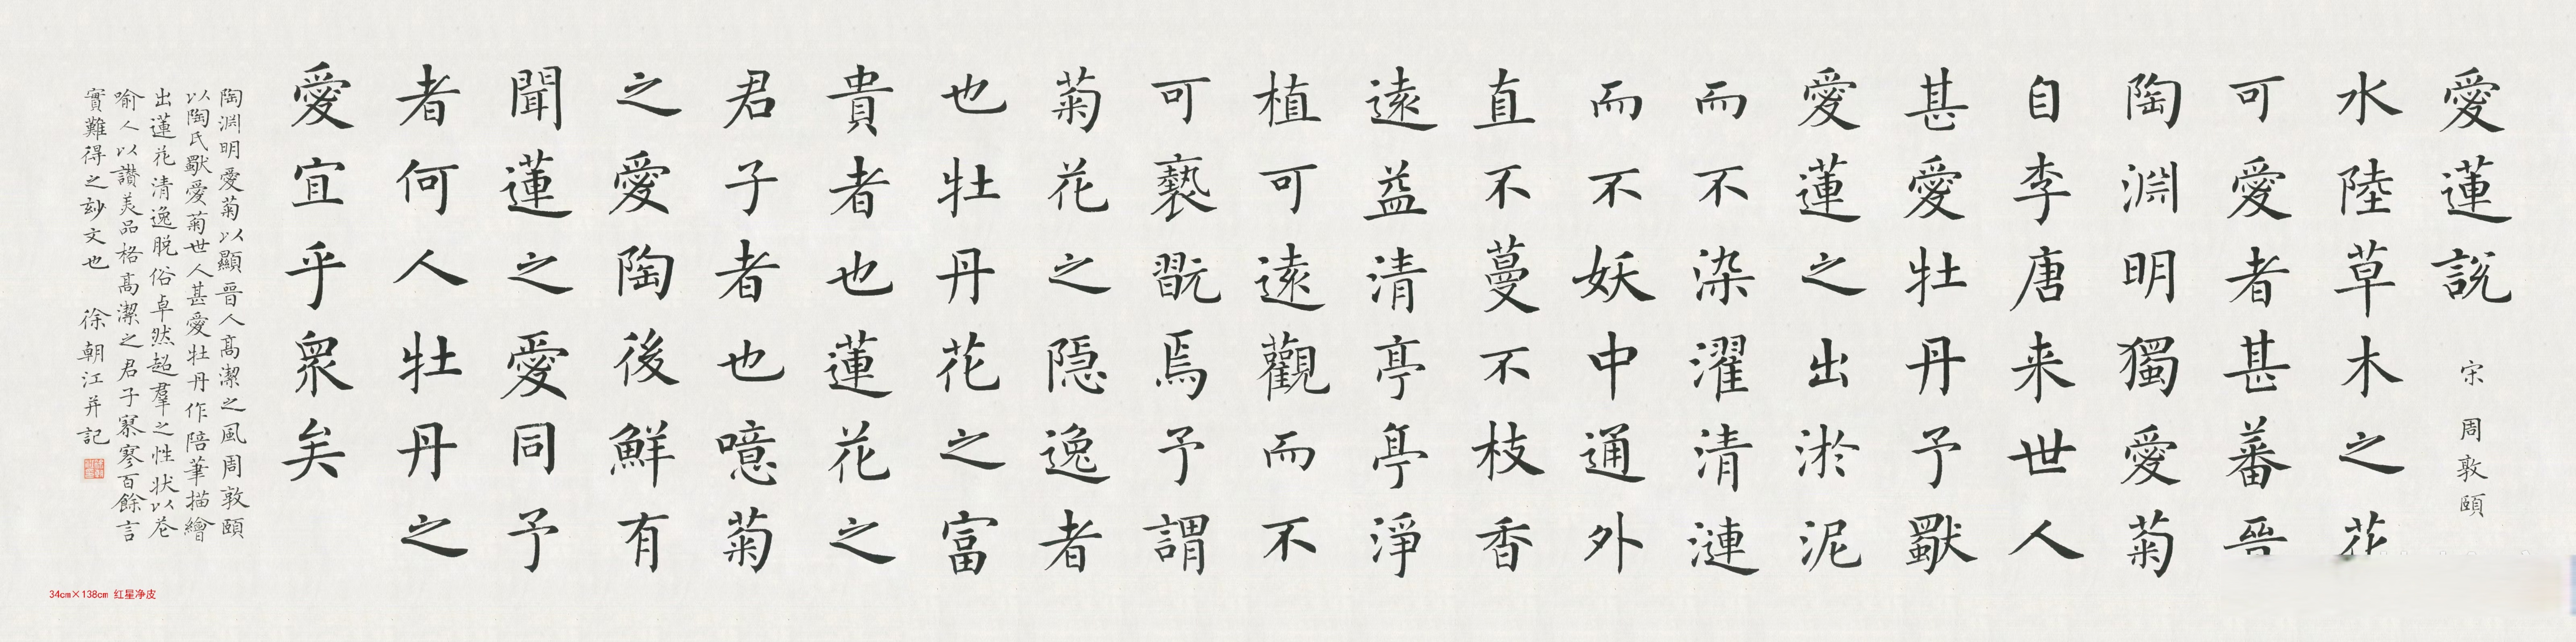 愛蓮說 宋 周敦頤
水陸草木之花
可愛者甚蕃晉
陶淵明獨愛菊
自李唐来世人
甚愛牡丹予獨
愛蓮之出淤泥
而不染濯清漣
而不妖中通外
直不蔓不枝香
遠益清亭亭淨
植可遠觀而不
可褻翫焉予謂
菊花之隱逸者
也牡丹花之富
貴者也蓮花之
君子者也噫菊
之愛陶後鮮有
聞蓮之愛同予
者何人牡丹之
愛宜乎衆矣
陶淵明愛菊以顯晉人高潔之風周敦頤
以陶氏獨愛菊世人甚愛牡丹作陪筆描繪
出蓮花清逸脫俗卓然超羣之性狀以花
喻人以讚美品格高潔之君子寥寥百餘言
實難得之妙文也 徐朝江并記
34cm×138cm 红星净皮